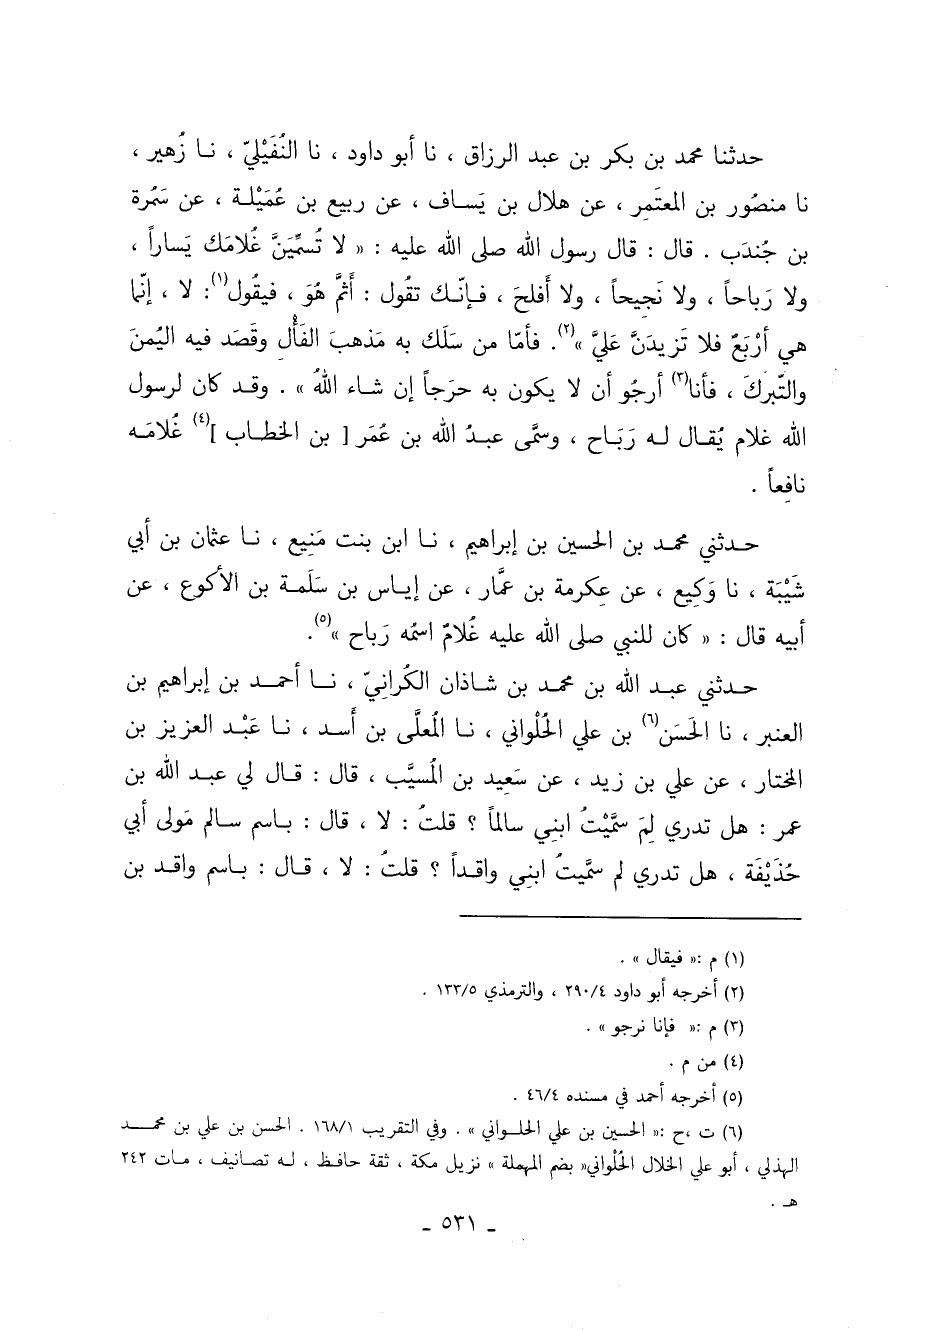 حدثنا محمد بن بكر بن عبد الرزاق ، نا أبو داود ، نا النُفَيْليّ ، نا زُهير ،
نا منصُور بن المعتَمِر ، عن هلال بن يَساف ، عن ربيع بن عُمَيْلة ، عن سَمُرة
بن جُندَب . قال : قال رسول الله صلى الله عليه : « لا تُسمِّيَنَّ غُلامَك يَساراً ،
ولا رَباحاً ، ولا نَجيحاً ، ولا أَفلحَ ، فإنّك تقُول : أَثمَّ هُوَ ، فيقُول(١): لا ، إنّما
هي أرْبَعٌ فلا تَزيدَنَّ عَليَّ »(٢). فأمّا من سَلَك به مَذهبَ الفَأْل وقَصَد فيه اليُمنَ
والتّبركَ ، فأنا(٣) أرجُو أن لا يكون به حرَجاً إن شاء اللهُ » . وقد كان لرسول
الله غلام يُقال له رَبَاح ، وسمَّى عبدُ الله بن عُمَر [ بن الخطاب ](٤) غُلامَه
نافِعاً .
حدثني محمد بن الحسين بن إبراهيم ، نا ابن بنت مَنِيع ، نا عثمان بن أبي
شَيْبَة ، نا وَكِيع ، عن عِكرمة بن عمَّار ، عن إياس بن سَلَمة بن الأكوع ، عن
أبيه قال : « كان للنبي صلى الله عليه غُلامٌ اسمُه رَباح »(٥).
حدثني عبد الله بن محمد بن شاذان الكُرانيّ ، نا أحمد بن إبراهيم بن
العنبر ، نا الحَسَن(٦) بن علي الحُلْواني ، نا المُعلَّى بن أَسد ، نا عَبْد العزيز بن
المختار ، عن علي بن زيد ، عن سَعِيد بن المُسيَّب ، قال : قال لي عبد الله بن
عمر : هل تدري لِمَ سمَّيْتُ ابنِي سالماً ؟ قلتُ : لا ، قال : باسم سالم مَولى أبي
حُذَيْفَة ، هل تدري لم سمَّيتُ ابنِي واقداً ؟ قلتُ : لا ، قال : باسم واقد بن
(١) م :« فيقال » .
(٢) أخرجه أبو داود ٢٩٠/٤ ، والترمذي ١٣٣/٥ .
(٣) م :« فإنا نرجو » .
(٤) من م .
(٥) أخرجه أحمد في مسنده ٤٦/٤ .
(٦) ت ،ح :« الحسين بن علي الحلواني » . وفي التقريب ١٦٨/١ . الحسن بن علي بن محمد
الهذلي ، أبو علي الخلال الحُلْواني« بضم المهملة » نزيل مكة ، ثقة حافظ ، له تصانيف ، مات ٢٤٢
هـ .
- ٥٣١ -